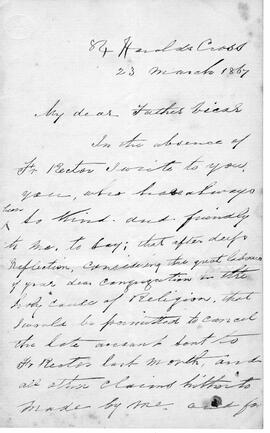 84 Harolds Cross
23 March 1867
My dear Father Vicar
In the absence of
Fr. Rector I write to you,
you, who has always
been
so kind. and. friendly
to me, to say; that after deep
Reflection, Considering the great
of your dear congregation in the
holy cause of Religion, that
I would be permitted to cancel
the late account sent to
Fr Rector last Month, and
all other claims hitherto
made by me. and